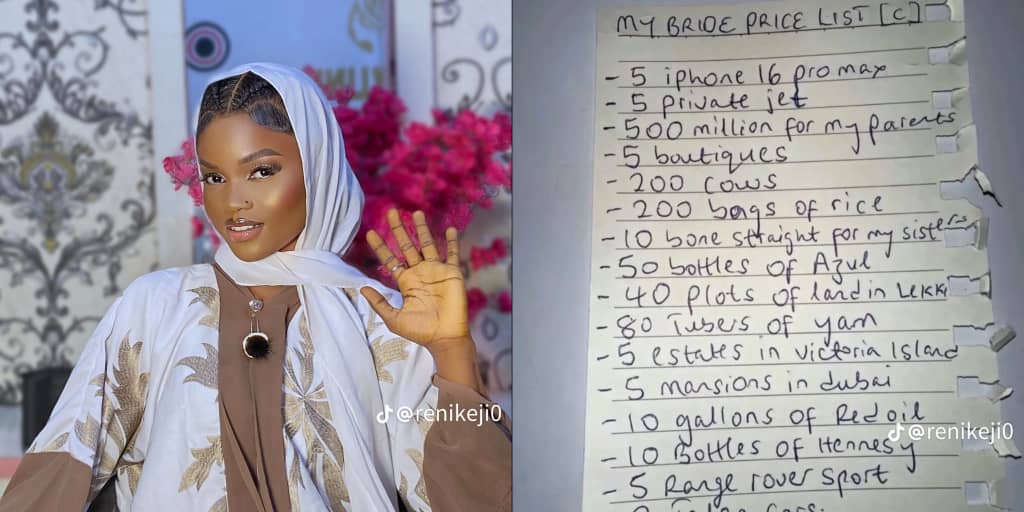 @renikeji0
MY BRIDE PRICE LIST [C]
- 5 iphone 16 pro max
- 5 private jet
- 500 million for my parents
- 5 boutiques
- 200 cows
- 200 bags of rice
- 10 bone straight for my sisters
- 50 bottles of Azul
- 40 plots of land in Lekki
- 80 Tubers of yam
- 5 estates in Victoria Island
- 5 mansions in dubai
- 10 gallons of Red oil
@renikeji0
- 10 Bottles of Hennesy
- 5 Range rover Sport